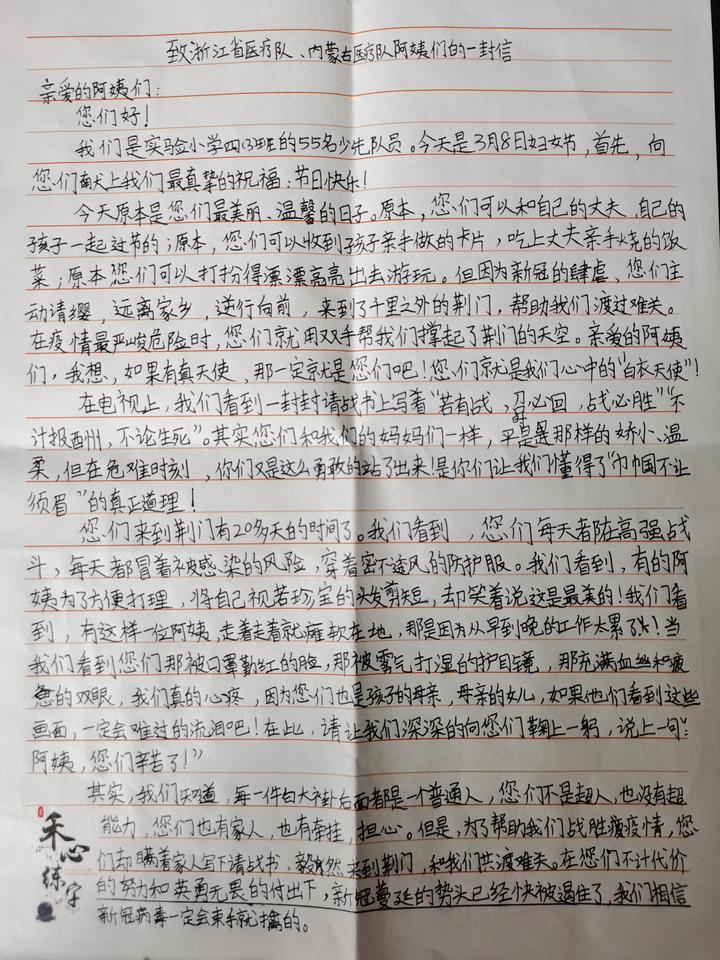 致浙江省医疗队、内蒙古医疗队阿姨们的一封信
亲爱的阿姨们：
您们好！
我们是实验小学四(3)班的55名少先队员。今天是3月8日妇女节，首先，向
您们献上我们最真挚的祝福：节日快乐！
今天原本是您们最美丽、温馨的日子。原本，您们可以和自己的丈夫，自己的
孩子一起过节的；原本，您们可以收到孩子亲手做的卡片，吃上丈夫亲手烧的饭
菜；原本您们可以打扮得漂漂亮亮出去游玩。但因为新冠的肆虐，您们主
动请缨，远离家乡，逆行向前，来到了千里之外的荆门，帮助我们渡过难关。
在疫情最严峻危险时，您们就用双手帮我们撑起了荆门的天空。亲爱的阿姨
们，我想，如果有真天使，那一定就是您们吧！您们就是我们心中的“白衣天使”！
在电视上，我们看到一封封请战书上写着“若有战，召必回，战必胜”“不
计报酬，不论生死”。其实您们和我们的妈妈们一样，平时是那样的娇小、温
柔，但在危难时刻，你们又是这么勇敢的站了出来！是你们让我们懂得了“巾帼不让
须眉”的真正道理！
您们来到荆门有20多天的时间了。我们看到，您们每天都在高强战
斗，每天都冒着被感染的风险，穿着密不透风的防护服。我们看到，有的阿
姨为了方便打理，将自己视若珍宝的头发剪短，却笑着说这是最美的！我们看
到，有这样一位阿姨，走着走着就瘫软在地，那是因为从早到晚的工作太累了！当
我们看到您们那被口罩勒红的脸，那被雾气打湿的护目镜，那充满血丝和疲
惫的双眼，我们真的心疼，因为您们也是孩子的母亲，母亲的女儿，如果他们看到这些
画面，一定会难过的流泪吧！在此，请让我们深深的向您们鞠上一躬，说上一句“：
阿姨，您们辛苦了！”
其实，我们知道，每一件白大褂后面都是一个普通人，您们不是超人，也没有超
能力，您们也有家人，也有牵挂，担心。但是，为了帮助我们战胜疫情，您
们却瞒着家人写下请战书，毅然来到荆门，和我们共渡难关。在您们不计代价
的努力和英勇无畏的付出下，新冠蔓延的势头已经快被遏住了，我们相信
新冠病毒一定会束手就擒的。
禾心练字